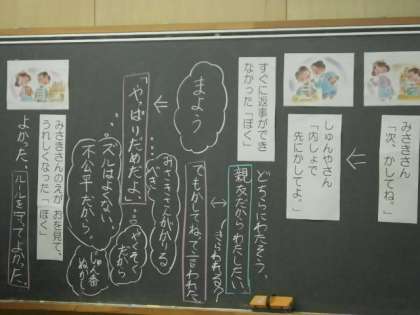 みさきさん
「次、かしてね。」
しゅんやさん
「内しょで
先にかしてよ。」
どちらにわたそう。
親友だからわたしたい。
きらわれる？
でもかしてねって言われた
すぐに返事ができ
なかった「ぼく」
まよう
みさきさんがかりる
「やっぱりだめだよ。」
やくそく
だから
じゅん番
ぬかし
ズルはよくない
不公平だから。
みさきさんのえがおを見て、
うれしくなった「ぼく」
よかった。ルールを守ってよかった。